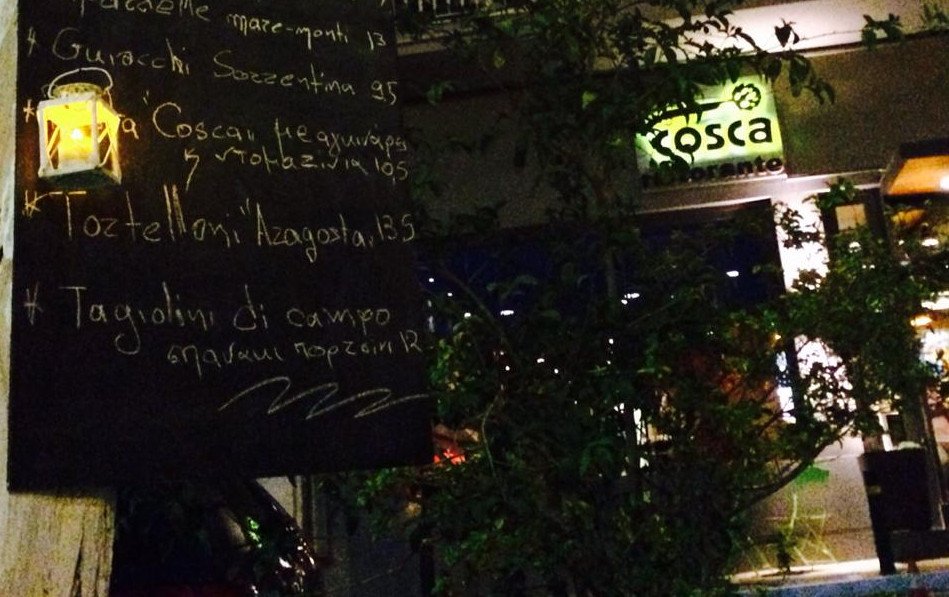 mare-monti 13
* Gurocchi Sorrentina 9,5
"Cosca" με αγκινάρες
ντοματίνια 10,5
* Tortelloni "Aragosta" 13.5
* Tagiolini di campo
σπανακι πορτσίνι 12
cosca
ristorante